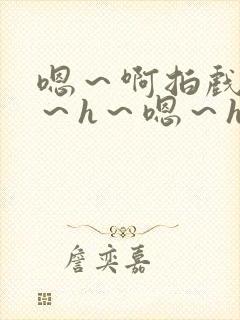 嗯～啊拍戏
～h～嗯～h
詹奕嘉